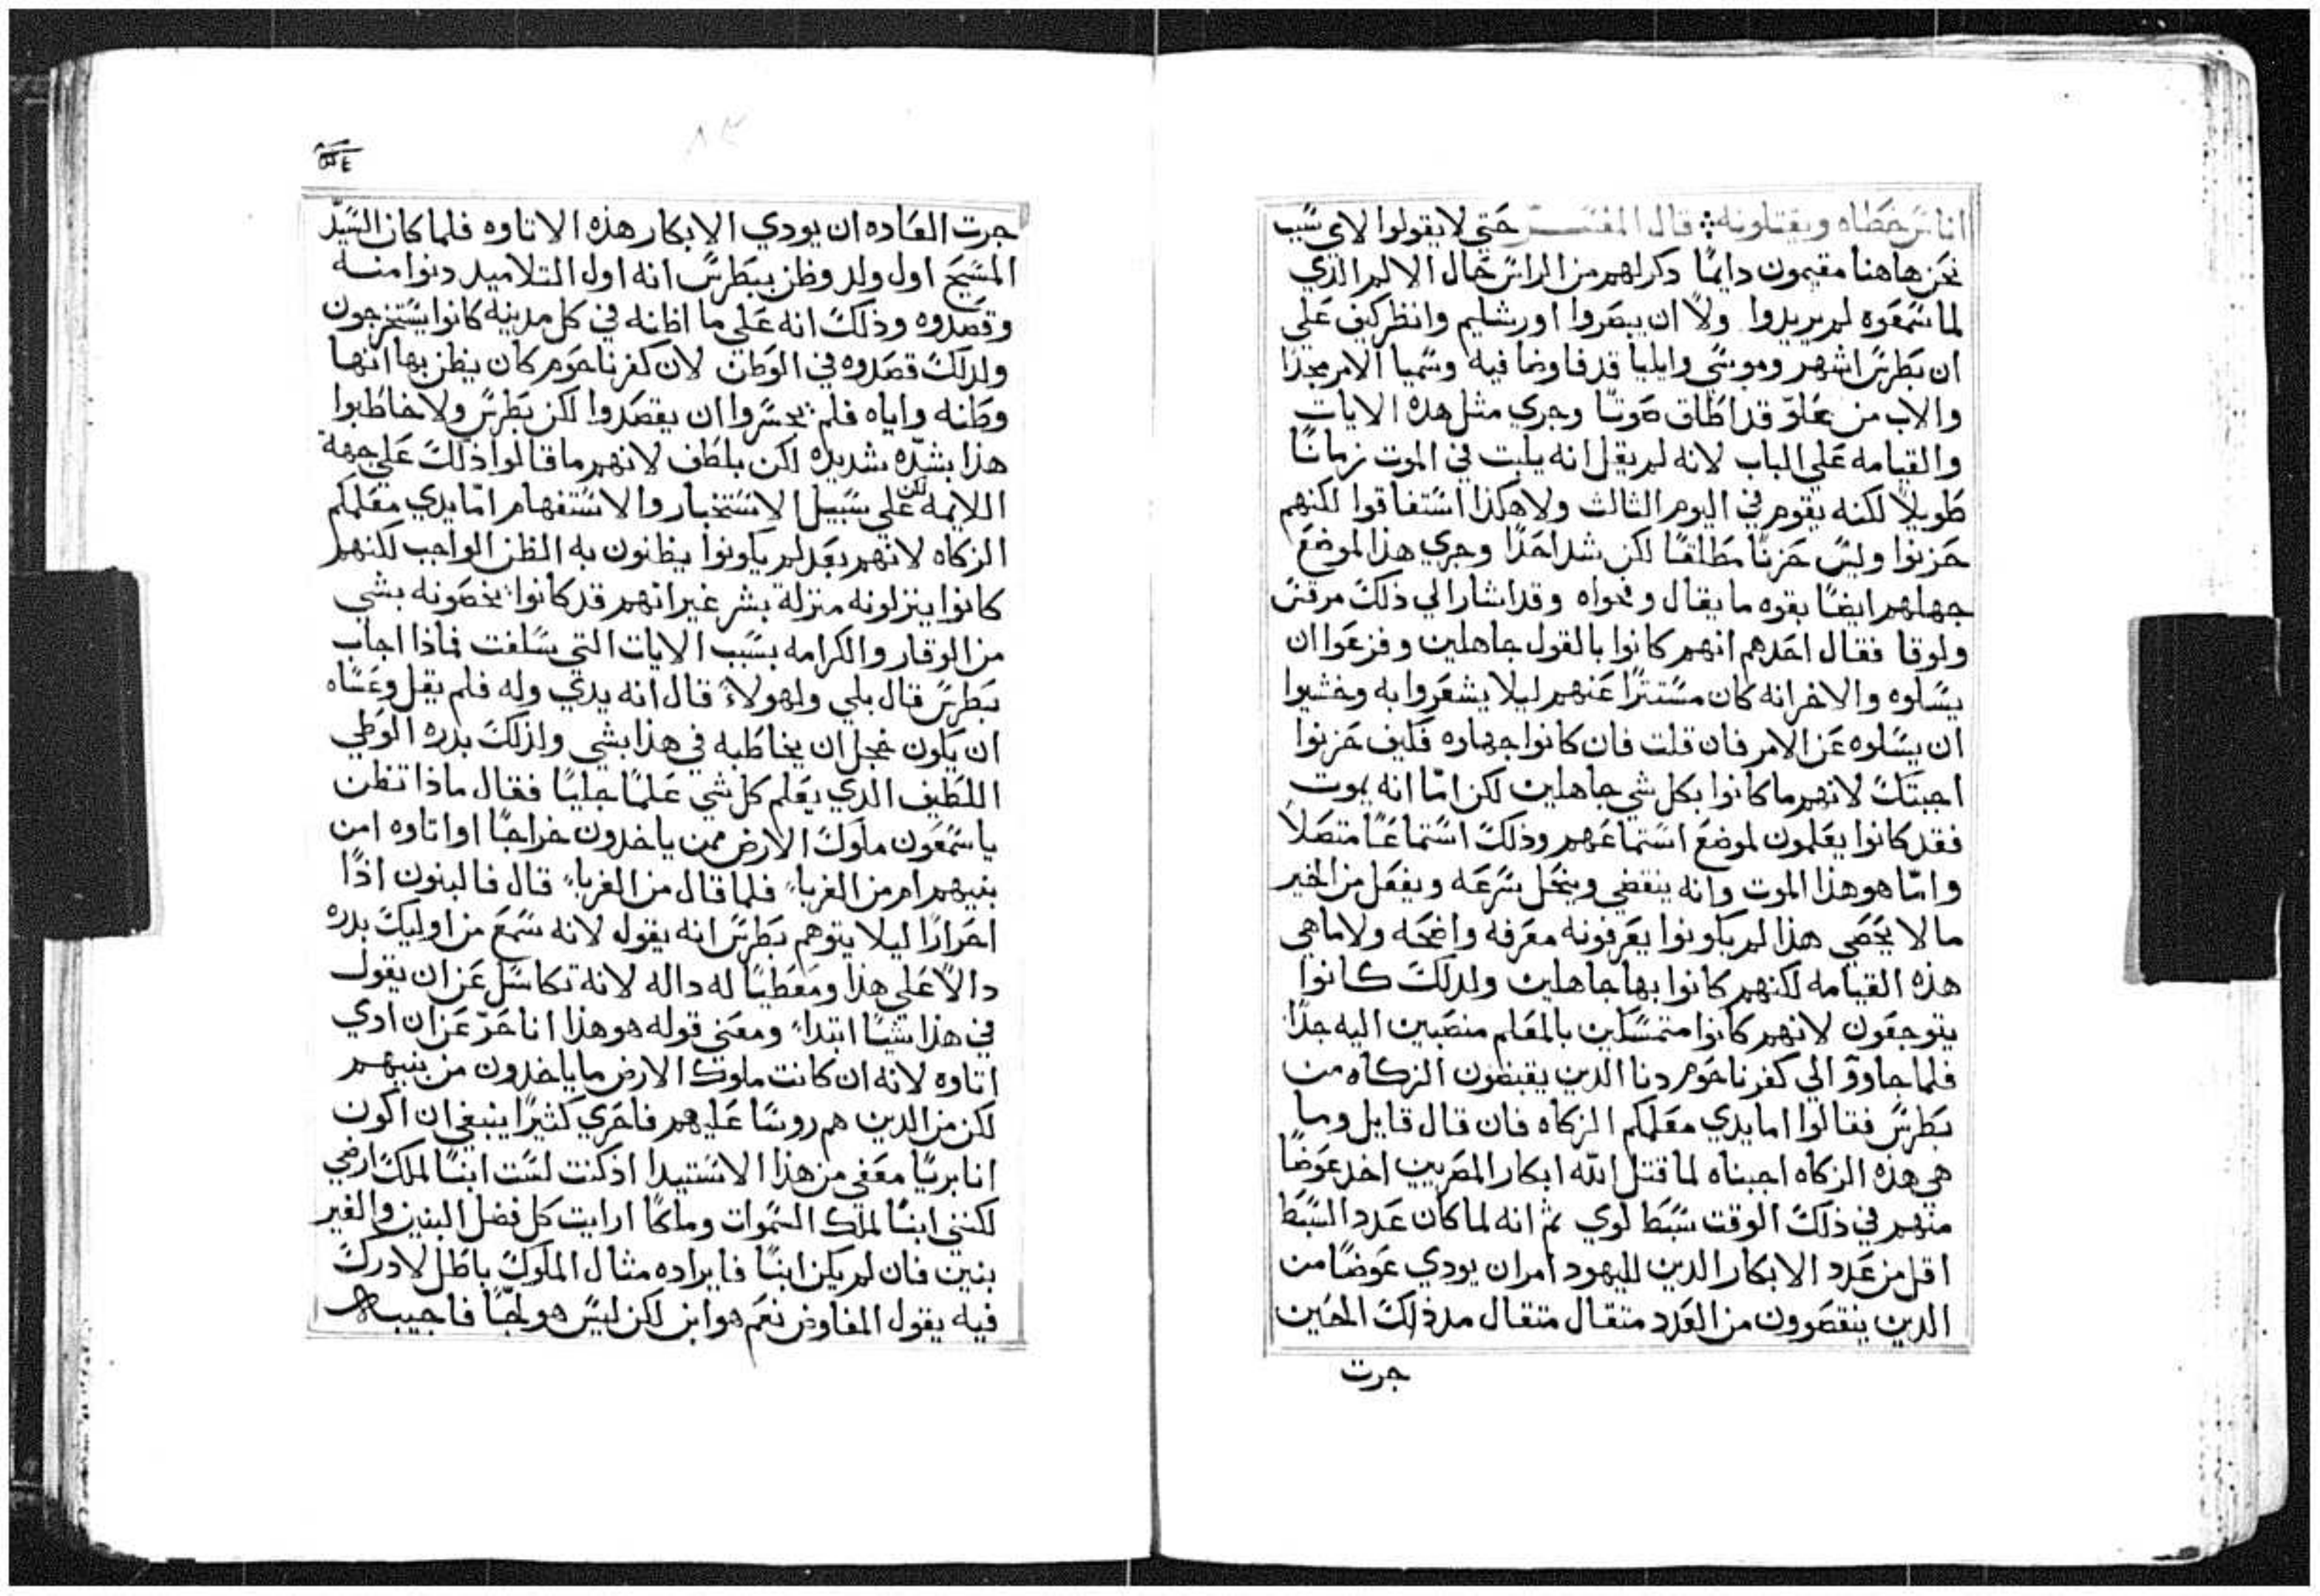 اناس خطاه ويقتلونه ܀ قال المفسر حتي لا يقولوا لاي سبب
نحن هاهنا مقيمون دايمًا دكر لهم من الراس حال الالم الذي
لما سمعوه لم يريدوا ولا ان يبصروا اورشليم وانظر كيف علي
ان بطرس اشهر وموسي وايليا قد فاوضا فيه وسميا الامر مجدًا
والاب من علوّ قد اطلق صوتًا وجري مثل هذه الايات
والقيامه علي الباب لانه لم يقل انه يلبت في الموت زمانًا
طويلاً لكنه يقوم في اليوم الثالث ولا هكذا استفاقوا لكنهم
حزنوا وليس حزنًا مطلقًا لكن شد احدًا وجري هذا لموضع
جهلهم ايضًا بقوه ما يقال وفحواه وقد اشار الي ذلك مرقس
ولوقا فقال احدهم انهم كانوا بالقول جاهلين وفزعوا ان
يسلوه والاخر انه كان مستترًا عنهم ليلا يشعروا به وخشيوا
ان يسلوه عن الامر فان قلت فان كانوا جهلوه فكيف حزنوا
اجبتك لانهم ما كانوا بكل شي جاهلين لكن امّا انه يموت
فقد كانوا يعلمون لموضع استماعهم وذلك استماعًا متصلاً
وامّا هو هذا الموت وانه ينقضي وينحل بسرعه ويفعل من الخير
ما لا يحصي هذا لم يكونوا يعرفونه معرفه واضحه ولا ما هي
هذه القيامه لكنهم كانوا بها جاهلين ولدلك كانوا
يتوجعون لانهم كانوا متمسكين بالمعلم منصبين اليه جدًا
فلما جاووّ الي كفرناحوم دنا الدين يقبضون الزكاه من
بطرس فقالوا اما يدي معلمكم الزكاه فان قال قايل وما
هي هذه الزكاه اجبناه لما قتل الله ابكار المصريين اخد عوضًا
منهم في ذلك الوقت سبط لوي ثم انه لما كان عدد السبط
اقل من عدد الابكار الدين لليهود امر ان يودي عوضًا من
الدين ينقصوون من العدد متقال متقال مدذلك الحين
جرت
جرت العاده ان يودي الابكار هذه الاتاوه فلما كان السيّد
المسيح اول ولد وظن ببطرس انه اول التلاميد دنوا منه
وقصدوه وذلك انه علي ما اظانه في كل مدينه كانوا يستخرجون
ولدلك قصدوه في الوطن لان كفرناحوم كان يظن بها انها
وطنه واياه فلم يجسروا ان يقصدوا لكن بطرس ولا خاطبوا
هذا بشدّه شديده لكن بلطف لانهم ما قالوا ذلك علي جهة
اللايمه لكن علي سبيل الاستخبار والاستفهام امّا يدي معلمكم
الزكاه لانهم بعد لم يكونوا يظنون به الظن الواجب لكنهم
كانوا ينزلونه منزلة بشر غير انهم قد كانوا يخصونه بشي
من الوقار والكرامه بسبب الايات التي سلفت فماذا اجاب
بطرس قال بلي ولهولاء قال انه يدي وله فلم يقل وعساه
ان يكون خجل ان يخاطبه في هذا بشي ولذلك بدره الوطي
اللطيف الدي يعلم كل شي علمًا جليًا فقال ماذا تظن
يا سمعون ملوك الارض ممن ياخدون خراجًا او اتاوه امن
بنيهم ام من الغربا فلما قال من الغربا قال فالبنون اذًا
احرارًا ليلا يتوهم بطرس انه يقول لانه سمع من اوليك بدره
دالاً علي هذا ومعطيًا له داله لانه تكاسل عن ان يقول
في هذا شيًا ابتداء ومعني قوله هو هذا انا حرّ عن ان ادي
اتاوه لانه ان كانت ملوك الارض ما ياخدون من بنيهم
لكن من الدين هم روسًا عليهم فاحري كثيرًا ينبغي ان اكون
انا بريًا معفي من هذا الاستيدا اد كنت لست ابنًا لملك ارضي
لكنني ابنًا لملك السموات وملكًا ارايت كل فضل البنين والغير
بنين فان لم يكن ابنًا فايراده مثال الملوك باطل لا درك
فيه يقول المفاوض نعم هو ابن لكن ليس هو لجبًا فاجيبه